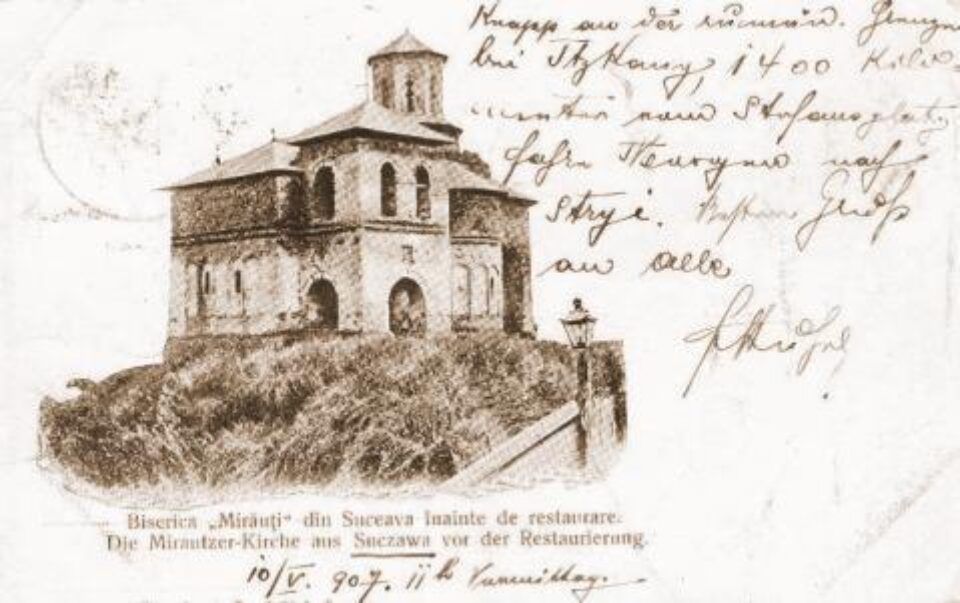 Knapp an der rumän. Grenze
bei Itzkany, 1400 Kilo-
meter vom Stefansplatz
fahre Morgen nach
Stryi. Besten Gruß
an alle
Biserica „Mirăuți“ din Suceava înainte de restaurare.
Die Mirautzer-Kirche aus Suczawa vor der Restaurierung.
10/V. 907. 11h Vormittag.